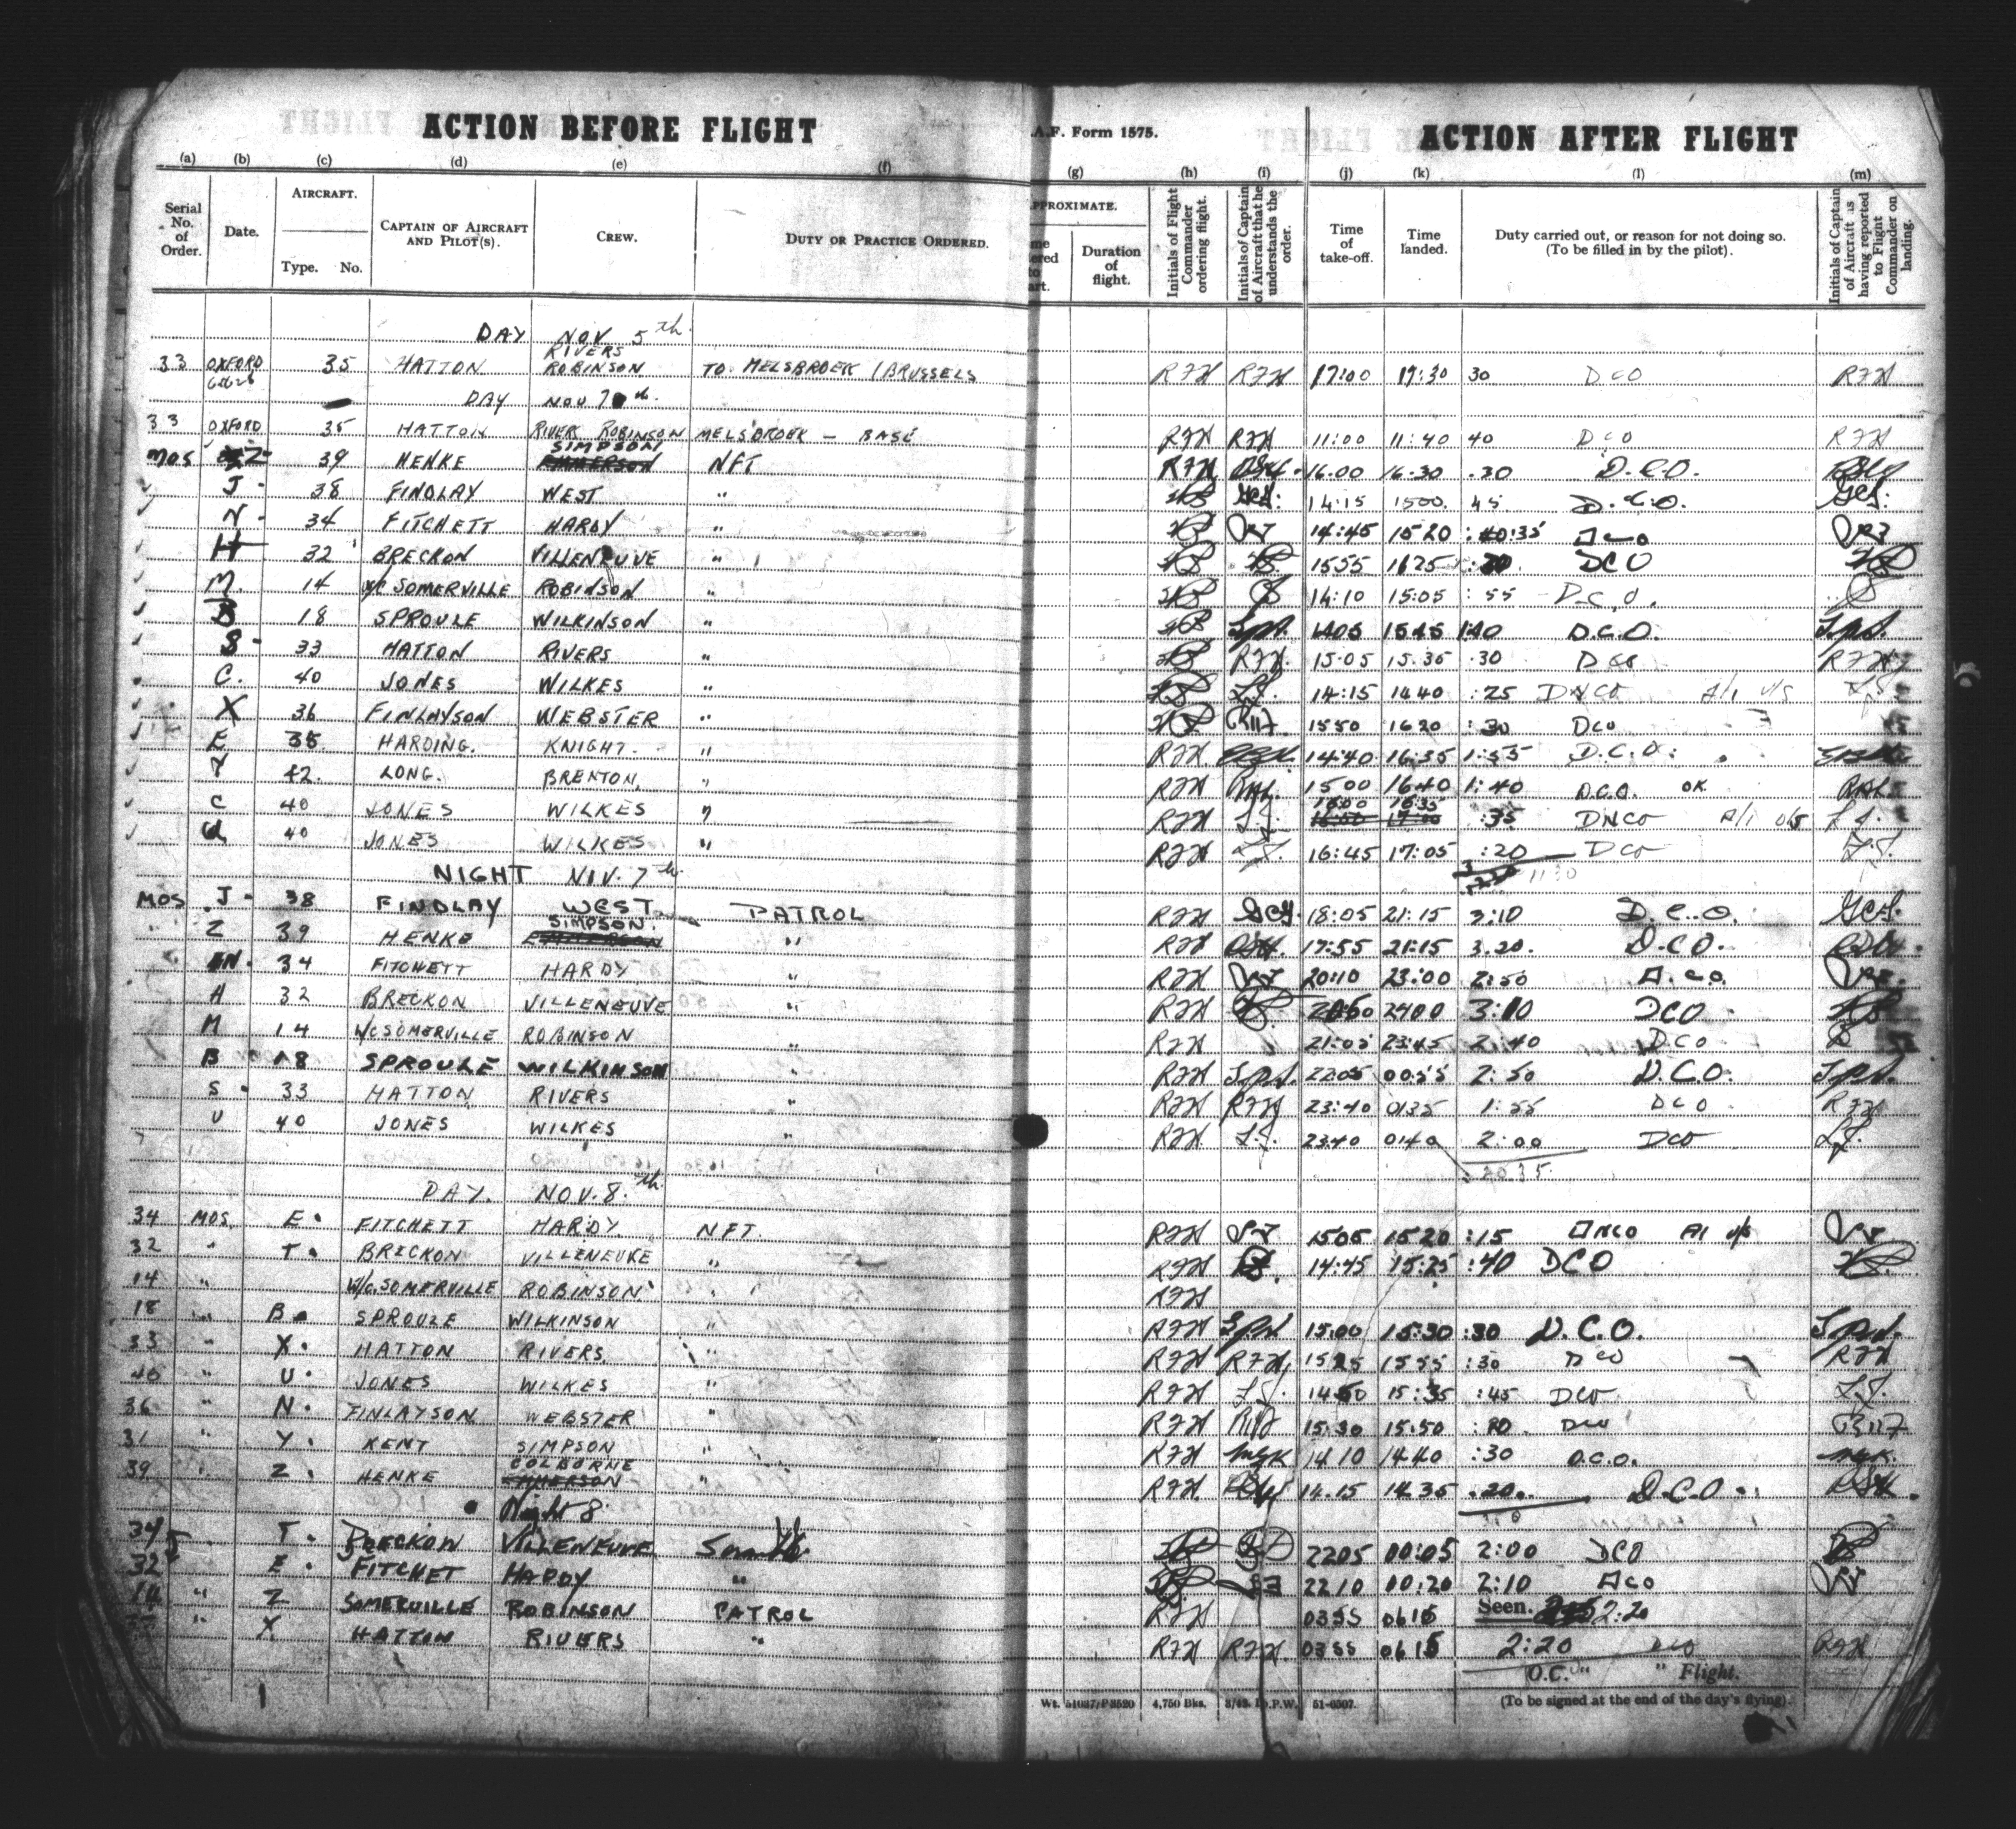 ACTION BEFORE FLIGHT
A.F. Form 1575.
ACTION AFTER FLIGHT
(a) (b) (c) (d) (e) (f) (g) (h) (i) (j) (k) (l) (m)
Serial No. of Order.
Date.
AIRCRAFT.
Type. No.
CAPTAIN OF AIRCRAFT AND PILOT(S).
CREW.
DUTY OR PRACTICE ORDERED.
PPROXIMATE.
Duration of flight.
Initials of Flight Commander ordering flight.
Initials of Captain of Aircraft that he understands the order.
Time of take-off.
Time landed.
Duty carried out, or reason for not doing so. (To be filled in by the pilot).
Initials of Captain of Aircraft as having reported to Flight Commander on landing.
DAY NOV 5th
RIVERS
33 OXFORD 35 HATTON ROBINSON TO MELSBROEK / BRUSSELS RFH RFH 17:00 17:30 30 DCO RFH
DAY NOV 7th
33 OXFORD 35 HATTON RIVER ROBINSON MELSBROEK - BASE RFH RFH 11:00 11:40 40 DCO RFH
SIMPSON
MOS Z 39 HENKE NFT RFH 16:00 16:30 .30 D.C.O.
J 38 FINDLAY WEST " 14:15 1500 45 D.C.O.
N 34 FITCHETT HARDY " 14:45 15 20 :35 DCO
H 32 BRECKON VILLENEUVE " 1555 1625 :30 DCO
M. 14 W/C SOMERVILLE ROBINSON " 14:10 15:05 :55 D.C.O.
B 18 SPROULE WILKINSON " 1405 1545 1:40 D.C.O.
S 33 HATTON RIVERS " RFH 15:05 15:35 :30 DCO RFH
C. 40 JONES WILKES " 14:15 1440 :25 DNCO A/I U/S
X 36 FINLAYSON WEBSTER " 1550 1620 :30 DCO
E 35 HARDING. KNIGHT. " RFH 14:40 16:35 1:55 D.C.O.
Y 42. LONG. BRENTON. " RFH 15 00 16:40 1:40 D.C.O. OK
C 40 JONES WILKES " RFH 16:00 16:35 :35 DNCO A/I U/S
U 40 JONES WILKES " RFH 16:45 17:05 :20 DCO
NIGHT NOV. 7th
MOS J 38 FINDLAY WEST PATROL RFH 18:05 21:15 3:10 D.C.O.
SIMPSON.
" Z 39 HENKE " RFH 17:55 21:15 3.20. D.C.O.
N 34 FITCHETT HARDY " RFH 20:10 23:00 2:50 D.C.O.
H 32 BRECKON VILLENEUVE " RFH 2050 2400 3:10 DCO
M 14 W/C SOMERVILLE ROBINSON " RFH 21:05 23:45 2:40 D.CO
B 18 SPROULE WILKINSON " RFH 22:05 00:55 2:50 D.C.O.
S 33 HATTON RIVERS " RFH RFH 23:40 0135 1:55 DCO RFH
U 40 JONES WILKES " RFH 2340 0140 2:00 DCO
DAY. NOV. 8.th
34 MOS E FITCHETT HARDY. NFT. RFH 1505 15 20 :15 DNCO AI U/S
32 " T BRECKON VILLENEUVE " RFH 14:45 15:25 :40 DCO
14 " W/C. SOMERVILLE ROBINSON " RFH
18 " B SPROULE WILKINSON " RFH 15:00 15:30 :30 D.C.O.
33 " X HATTON RIVERS " RFH RFH 1525 1555 :30 DCO RFH
40 " U JONES WILKES " RFH 14:50 15:35 :45 DCO
36 " N FINLAYSON WEBSTER " RFH 15:30 15:50 :20 DCO
31 " Y KENT SIMPSON " RFH MGK 14 10 14 40 :30 D.C.O. MGK.
COLBORNE
39 Z HENKE " RFH 14.15 14 35 .20. D.C.O.
Night 8
34 T BRECKON VILLENEUVE 2205 00:05 2:00 DCO
32 E FITCHET HARDY " 22 10 00:20 2:10 DCO
14 " Z SOMERVILLE ROBINSON PATROL RFH 0355 0615 Seen. 2:20
" X HATTON RIVERS " RFH RFH 0355 0615 2:20 DCO RFH
O.C. " " Flight.
4,750 Bks. 51-6507. (To be signed at the end of the day's flying).